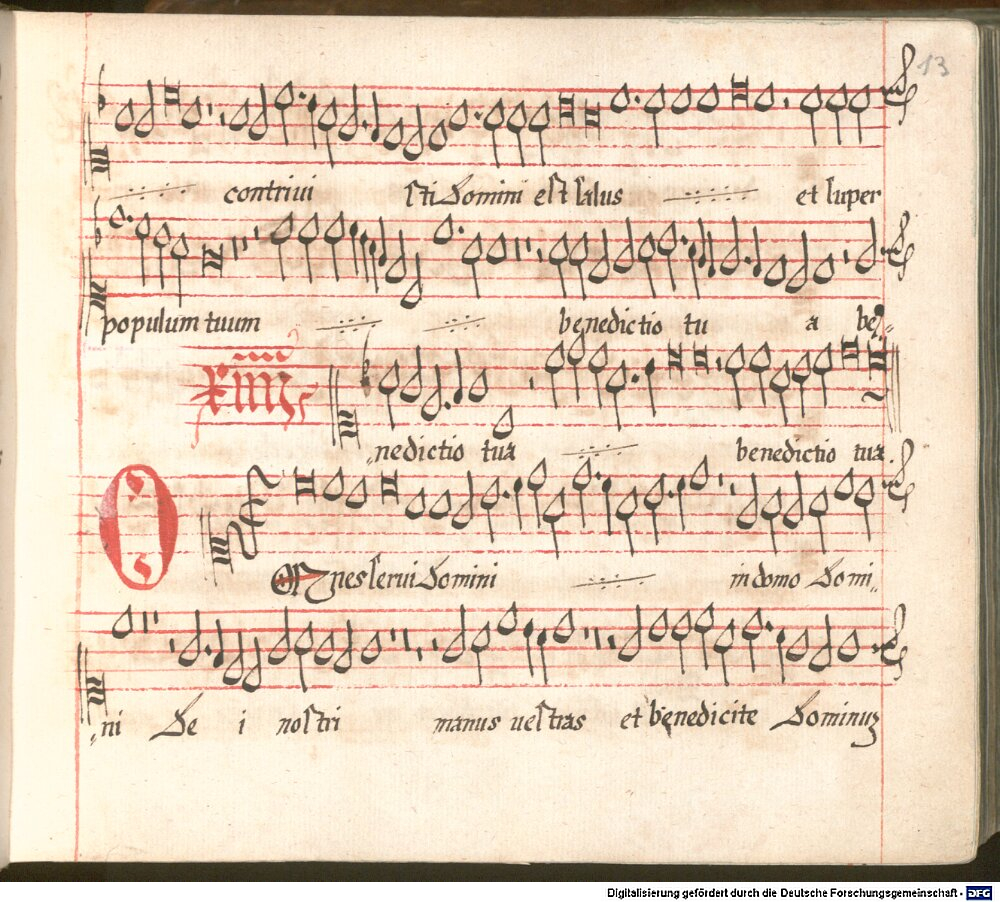 13
contrivi sti Domini est salus et super
populum tuum benedictio tu a be„
XIIII
„nedictio tua benedictio tua.
OMnes servi Domini in domo Domi„
„ni De i nostri manus vestras et benedicite Dominuʒ
Digitalisierung gefördert durch die Deutsche Forschungsgemeinschaft - DFG